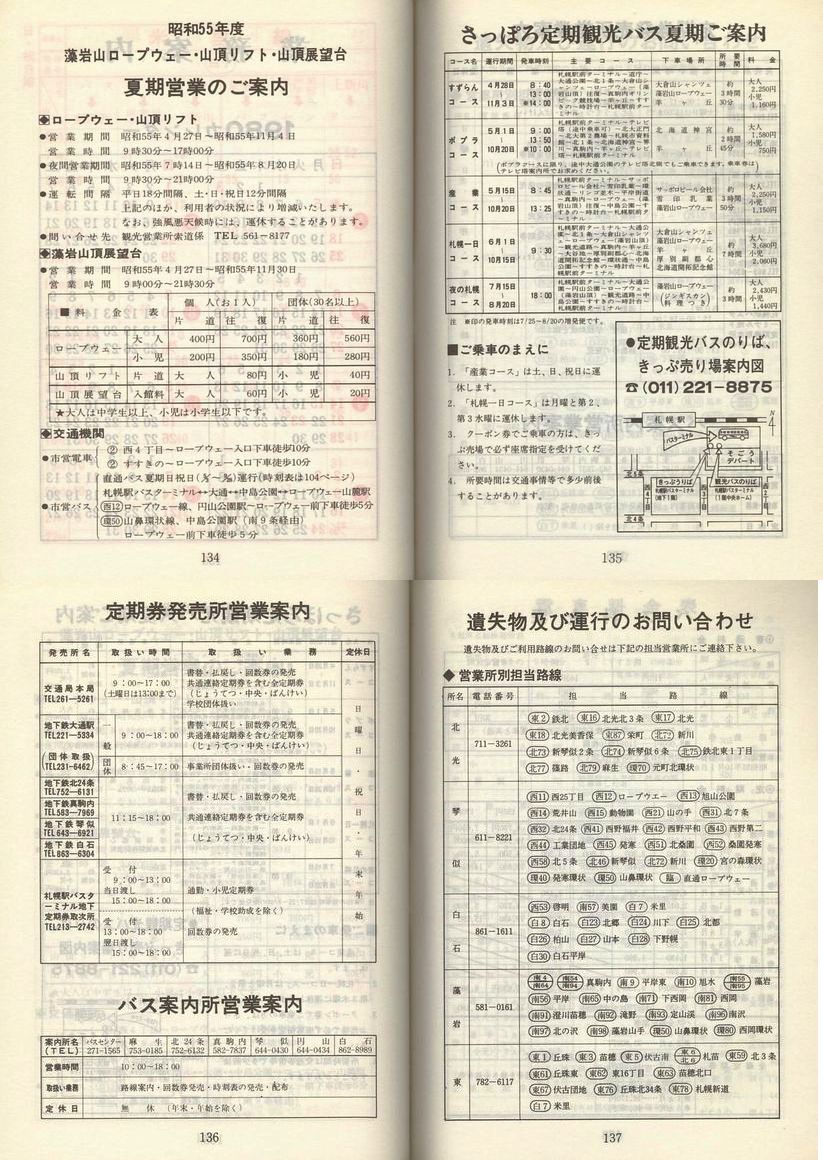 昭和55年度
藻岩山ロープウェー・山頂リフト・山頂展望台
夏期営業のご案内
◆ロープウェー・山頂リフト
●営業期間 昭和55年4月27日〜昭和55年11月4日
営業時間 9時30分〜17時00分
●夜間営業期間 昭和55年7月14日〜昭和55年8月20日
営業時間 9時30分〜21時00分
●運転間隔 平日18分間隔、土・日・祝日12分間隔
上記のほか、利用者の状況により増減いたします。
なお、強風悪天候時には、運休することがあります。
●問い合せ先 観光営業所索道係 TEL 561-8177
◆藻岩山頂展望台
●営業期間 昭和55年4月27日〜昭和55年11月30日
営業時間 9時00分〜21時30分
■料金表 個人(お1人) 団体(30名以上)
片道 往復 片道 往復
ロープウェー 大人 400円 700円 360円 560円
小児 200円 350円 180円 280円
山頂リフト 片道 大人 80円 小児 40円
山頂展望台 入館料 大人 60円 小児 20円
★大人は中学生以上、小児は小学生以下です。
◆交通機関
●市営電車 ② 西4丁目〜ロープウェー入口下車徒歩10分
② すすきの〜ロープウェー入口下車徒歩10分
●市営バス 直通バス夏期日祝日運行(時刻表は104ページ)
札幌駅バスターミナル↔大通↔中島公園↔ロープウェー山麓駅
西12 ロープウェー線、円山公園駅〜ロープウェー前下車徒歩5分
環50 山鼻環状線、中島公園駅(南9条経由)
ロープウェー前下車徒歩5分
134
さっぽろ定期観光バス夏期ご案内
コース名 運行期間 発車時刻 主要コース 下車場所 所要時間 料金
すずらんコース 4月28日〜11月3日 8:40 13:00 ※14:00
大倉山シャンツェ 藻岩山ロープウェー 羊ヶ丘 約3時間30分 大人2,250円 小児1,160円
ポプラコース 5月1日〜10月20日 9:00 13:50 ※10:00
北海道神宮 羊ヶ丘 約2時間45分 大人1,580円 小児750円
(ポプラコースに限り、途中大通公園のテレビ塔北側でもご乗車できます。乗車券はテレビ塔案内所でお求めください。)
産業コース 5月15日〜10月20日 8:45 13:25
サッポロビール会社 雪印乳業 藻岩山ロープウェー 約3時間50分 大人2,250円 小児1,150円
札幌一日コース 6月1日〜10月15日 9:30
大倉山シャンツェ 藻岩山ロープウェー 羊ヶ丘 厚別副都心 北海道開拓記念館 約7時間 大人3,680円 小児2,060円
夜の札幌コース 7月15日〜8月20日 18:00
藻岩山ロープウェー (ジンギスカン料理つき) 約3時間 大人2,430円 小児1,440円
注 ※印の発車時刻は7/25〜8/20の増発便です。
■ご乗車のまえに
1. 「産業コース」は土、日、祝日に運休します。
2. 「札幌一日コース」は月曜と第2、第3水曜に運休します。
3. クーポン券でご乗車の方は、きっぷ売場で必ず座席指定を受けてください。
4. 所要時間は交通事情等で多少前後することがあります。
●定期観光バスのりば、
きっぷ売り場案内図
☎(011)221-8875
札幌駅
N
バスターミナル
そごうデパート
北5条
きっぷうりば 札幌駅バスターミナル(地下1階)
観光バスのりば 札幌駅バスターミナル(1階中央ホーム)
西4丁目
西3丁目
西2丁目
北4条
135
定期券発売所営業案内
発売所名 取扱い時間 取扱い業務 定休日
交通局本局 TEL261-5261 9:00〜17:00 (土曜日は13:00まで)
書替・払戻し・回数券の発売
共通連絡定期券を含む全定期券
(じょうてつ・中央・ばんけい)
学校団体扱い
地下鉄大通駅 TEL221-5334 一般 9:00〜18:00
書替・払戻し・回数券の発売
共通連絡定期券を含む全定期券
(じょうてつ・中央・ばんけい)
(団体取扱) TEL231-6462 団体 8:45〜17:00 事業所団体扱い・回数券の発売
地下鉄北24条 TEL752-6131
地下鉄真駒内 TEL583-7969
地下鉄琴似 TEL643-6921
地下鉄白石 TEL863-6304
11:15〜18:00
書替・払戻し・回数券の発売
共通連絡定期券を含む全定期券
(じょうてつ・中央・ばんけい)
札幌駅バスターミナル地下定期券取次所 TEL213-2742
受付 9:00〜13:00
当日渡し 15:00〜18:00
受付 13:00〜18:00
翌日渡し 15:00〜18:00
通勤・小児定期券
(福祉・学校助成を除く)
回数券の発売
日曜日・祝日・年末年始
バス案内所営業案内
案内所名(TEL) バスセンター 271-1565 麻生 753-0185 北24条 752-6132 真駒内 582-7837 琴似 644-0430 円山 644-0434 白石 862-8989
営業時間 10:00〜18:00
取扱い業務 路線案内・回数券発売・時刻表の発売・配布
定休日 無休(年末・年始を除く)
136
遺失物及び運行のお問い合わせ
遺失物及びご利用路線のお問い合せは下記の担当営業所にご連絡下さい。
◆営業所別担当路線
所名 電話番号 担当路線
北光 711-3261
東2 鉄北 東16 北光北3条 東17 北光
東18 北光美香保 東87 栄町 北72 新川
北73 新琴似2条 北74 新琴似6条 北75 鉄北東1丁目
北77 篠路 北79 麻生 環70 元町北環状
琴似 611-8221
西11 西25丁目 西12 ロープウェー 西13 旭山公園
西14 荒井山 西15 動物園 西21 山の手 西31 北7条
西32 北24条 西41 西野福井 西42 西野平和 西43 西野第二
西44 工業団地 西45 発寒 西51 北桑園 西52 桑園発寒
西58 北5条 北46 新琴似 北72 新川 環20 宮の森環状
環40 発寒環状 環50 山鼻環状 臨 直通ロープウェー
白石 861-1611
西53 啓明 南57 美園 白7 米里
白8 白石 白23 北郷 白24 川下 白25 北都
白26 柏山 白27 山本 白28 下野幌
白30 白石平岸
藻岩 581-0161
南4 南64 南54 南94 真駒内 南9 平岸東 南10 旭水 南55 南95 藻岩
南56 平岸 南65 中の島 南71 下西岡 南81 西岡
南91 澄川苗穂 南92 滝野 南93 定山渓 南96 南沢
南97 北の沢 南98 藻岩山手 環50 山鼻環状 環80 西岡環状
東 782-6117
東1 丘珠 東3 苗穂 東5 伏古南 東6 北6 札苗 東59 北3条
東61 丘珠東 東62 東16丁目 東63 苗穂北口
東67 伏古団地 東76 丘珠北34条 東78 札幌新道
白7 米里
137